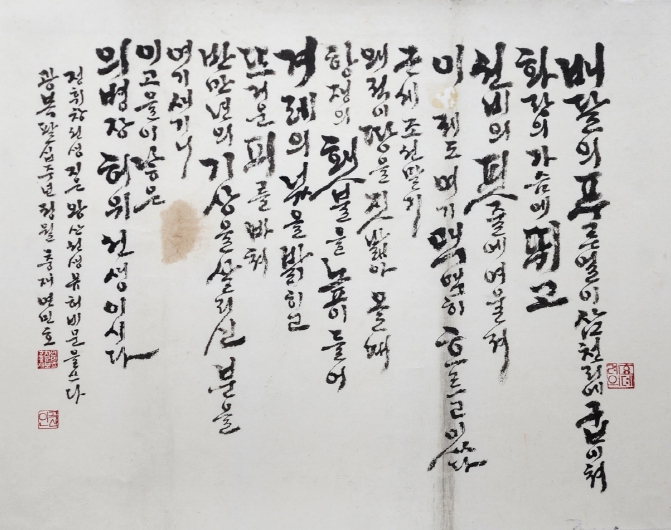 배달의 푸른얼이 삼천리에 굽이쳐
화랑의 가슴에 뛰고
선비의 핏줄에 여울져
이제도 여기 맥맥히 흐르고 있다
근세 조선말기
왜적이 땅을 짓밟아 올때
항쟁의 횃불을 높이 들어
겨레의 넋을 밝히고
뜨거운 피를 바쳐
반만년의 기상을 살리신 분을
여기 새기니
이 고을이 낳은
의병장 허위 선생이시다
정휘창선생 짓은 왕산선생유허비문을 쓰다
광복팔십주년 정월